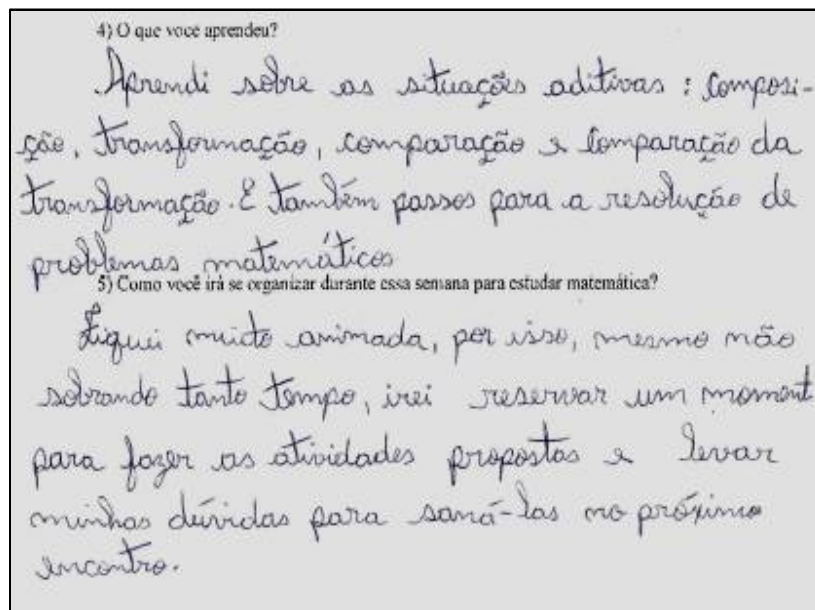 4) O que você aprendeu?
Aprendi sobre as situações aditivas: composi-
ção, transformação, comparação e comparação da
transformação. E também passos para a resolução de
problemas matemáticos
5) Como você irá se organizar durante essa semana para estudar matemática?
Fiquei muito animada, por isso, mesmo não
sobrando tanto tempo, irei reservar um moment
para fazer as atividades propostas e levar
minhas dúvidas para saná-las no próximo
encontro.